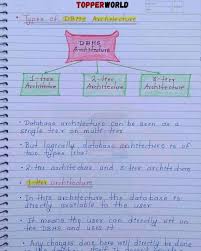 TOPPERWORLD
• Types of DBMS Architecture
DBMS
Architecture
1-tier
Architecture
2-tier
Architecture
3-tier
Architecture
• Database architecture can be seen as a
single tier or multi tier.
• But logically database architecture is of
two types like:
• 2-tier architecture and 3-tier architecture
• 1-tier architecture
• In this architecture the database is
directly available to the user
• It means the user can directly sit on
the DBMS and uses it
• Any changes done here will directly be done